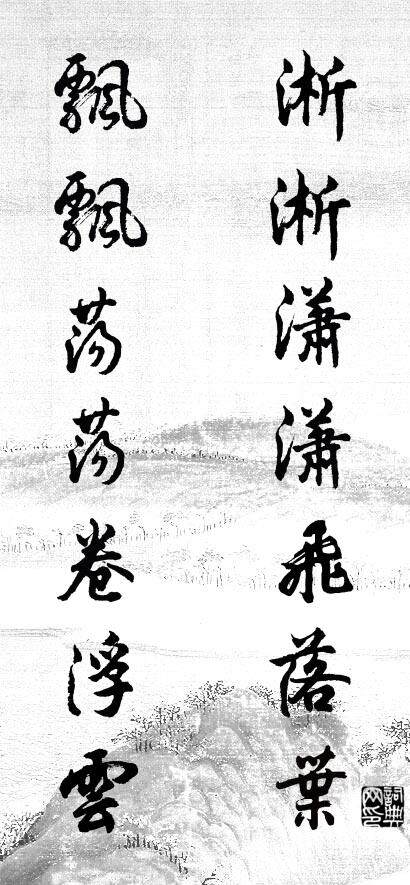 淅淅瀟瀟飛落葉
飄飄蕩蕩卷浮雲
詞典網